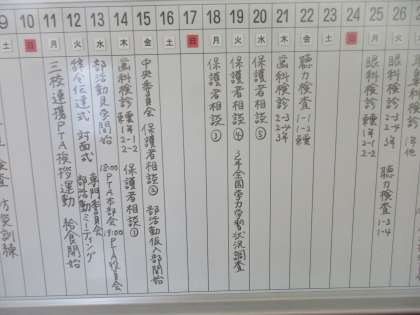 9 10 11 12 13 14 15 16 17 18 19 20 21 22 23 24 25 26
土 日 月 火 水 木 金 土 日 月 火 水 木 金 土 日 月 火
検査 防災訓練
三校連携PTA挨拶運動 給食開始
辞令伝達式 対面式 部活動ミーティング
部活動見学開始 専門委員会
歯科検診 1年 2-1 2-2 保護者相談①
18:00 PTA本部会 19:00 PTA役員会
中央委員会 保護者相談② 部活動仮入部開始
保護者相談③
保護者相談④ 3年全国学力学習状況調査
保護者相談⑤
歯科検診 2-3 2-4 3年
聴力検査 1-1 1-2
眼科検診 1年 2-1 2-2
眼科検診 2-3 2-4 3年 聴力検査 1-3 1-4